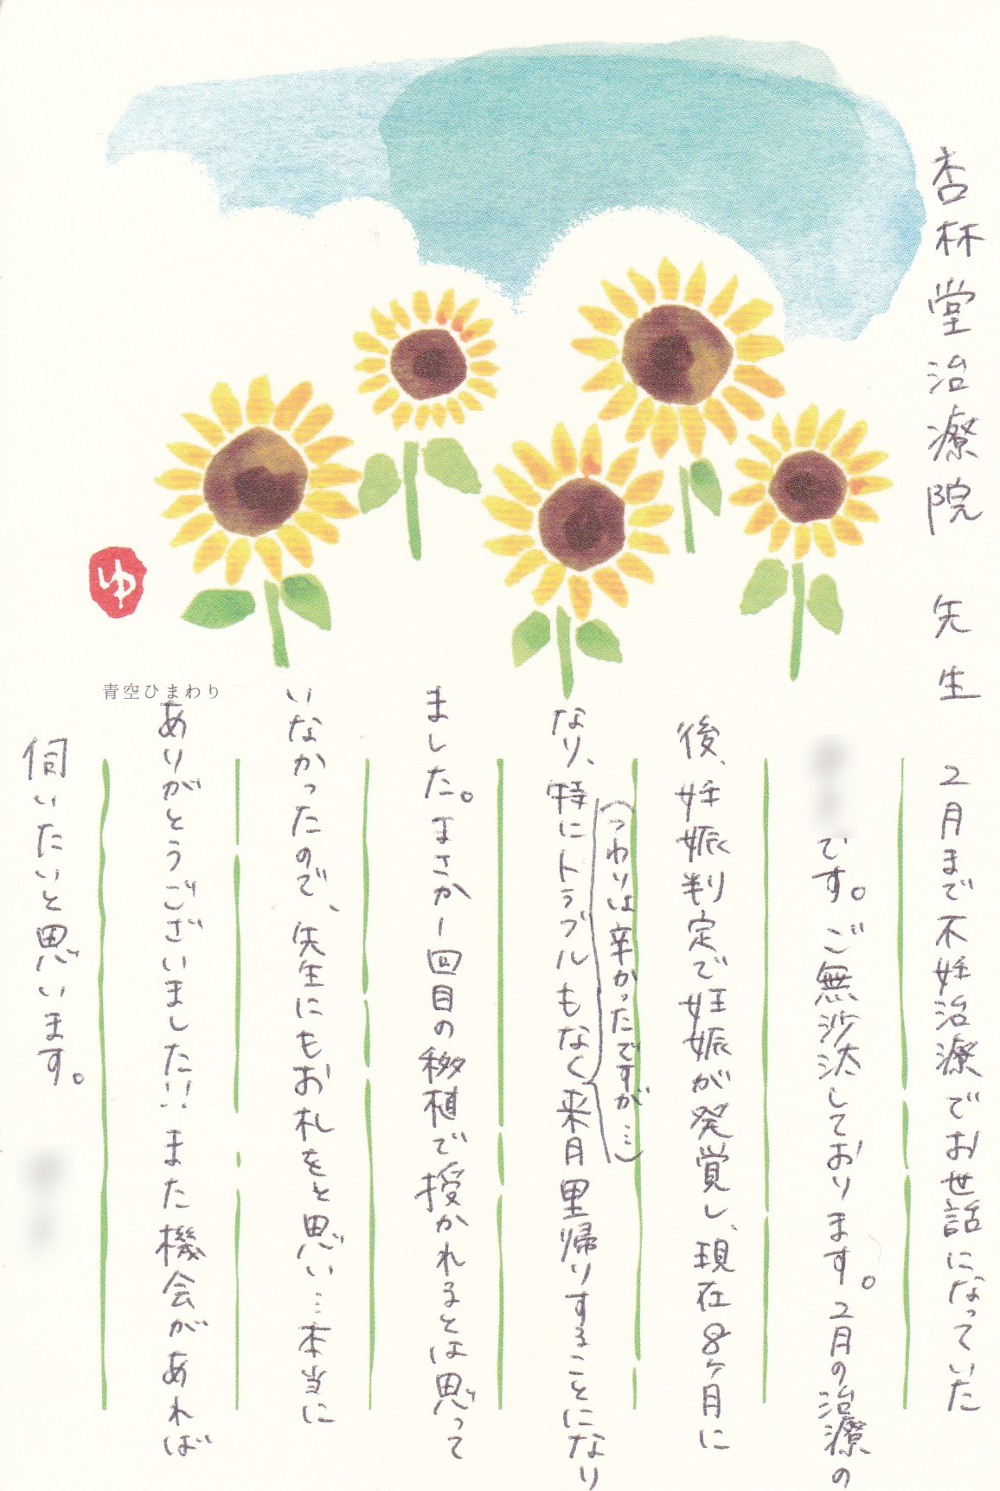 杏林堂治療院 先生
2月まで不妊治療でお世話になっていた
です。ご無沙汰しております。2月の治療の
後、妊娠判定で妊娠が発覚し、現在8ヶ月に
(つわりは辛かったですが…)
なり、特にトラブルもなく来月里帰りすることになり
ました。まさか一回目の移植で授かれるとは思って
いなかったので、先生にもお礼をと思い…本当に
ありがとうございました!! また機会があれば
伺いたいと思います。
ゆ
青空ひまわり